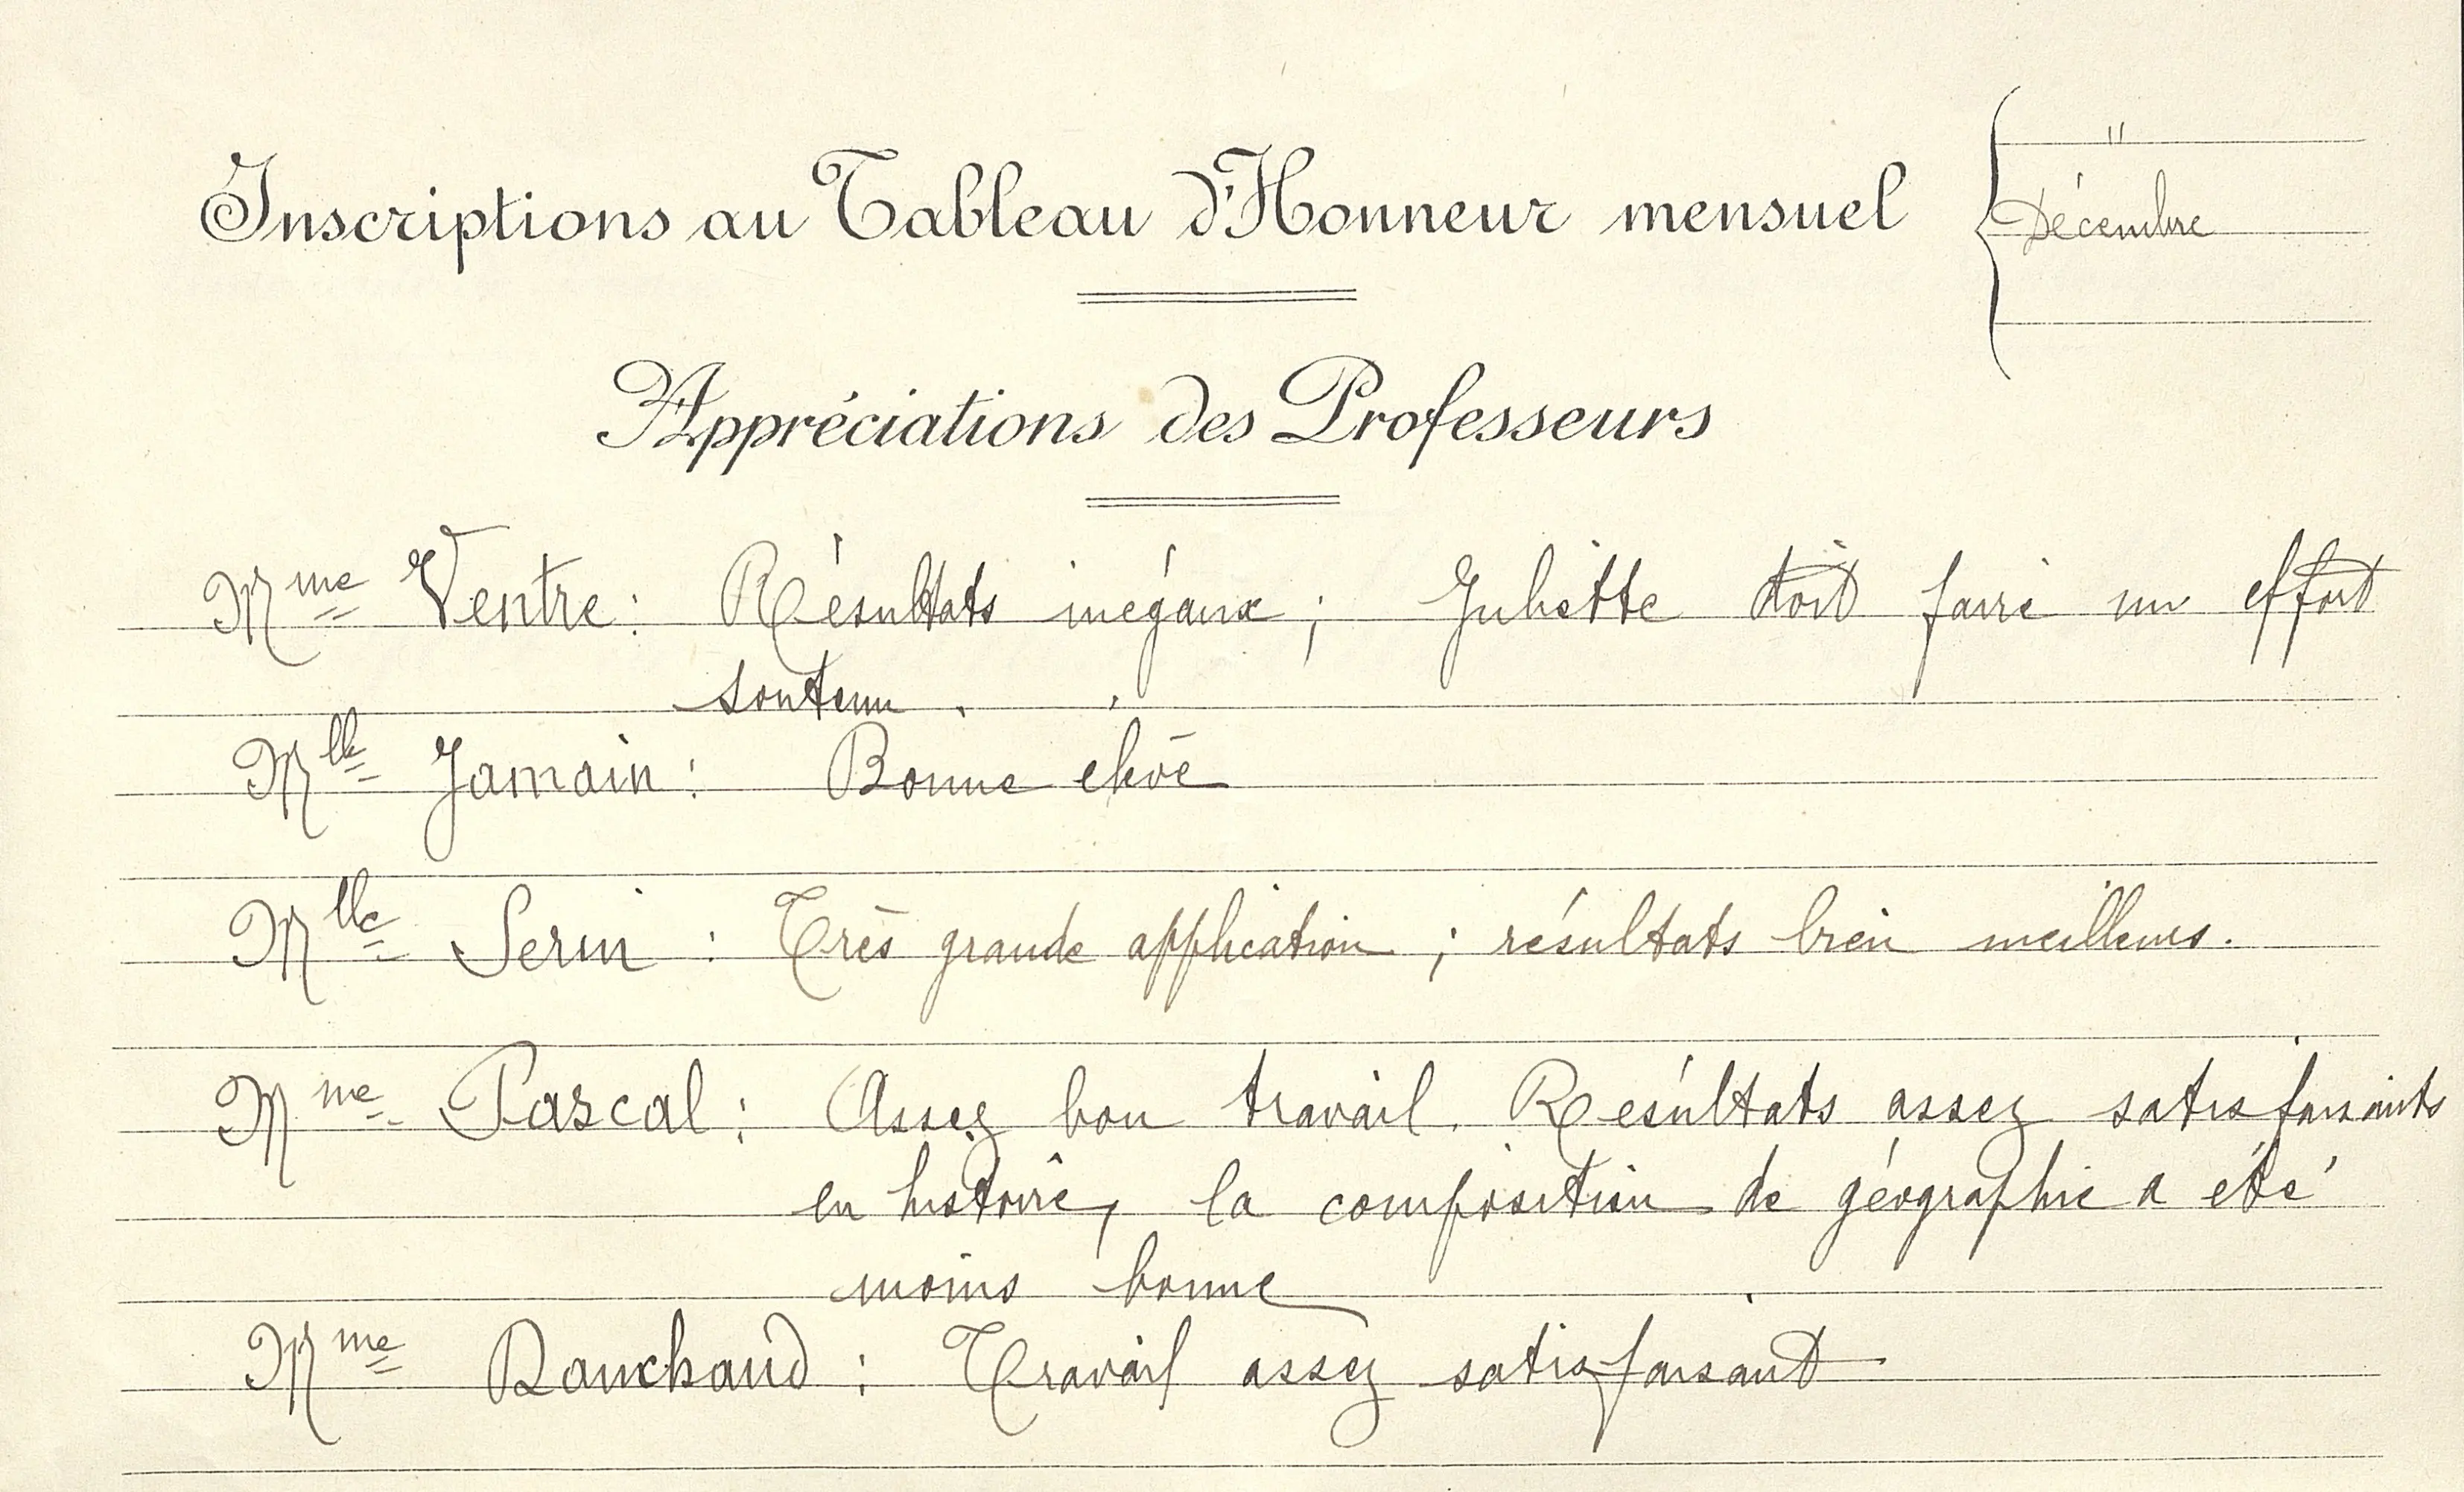 "
Inscriptions au Tableau d'Honneur mensuel
Décembre
Appréciations des Professeurs
Mme Ventre : Résultats inégaux ; Juliette doit faire un effort
soutenu.
Mlle Jamain : Bonne élève
Mlle Serin : Très grande application ; résultats bien meilleurs.
Mme Pascal : Assez bon travail. Résultats assez satisfaisants
en histoire, la composition de géographie a été
moins bonne
Mme : Travail assez satisfaisant